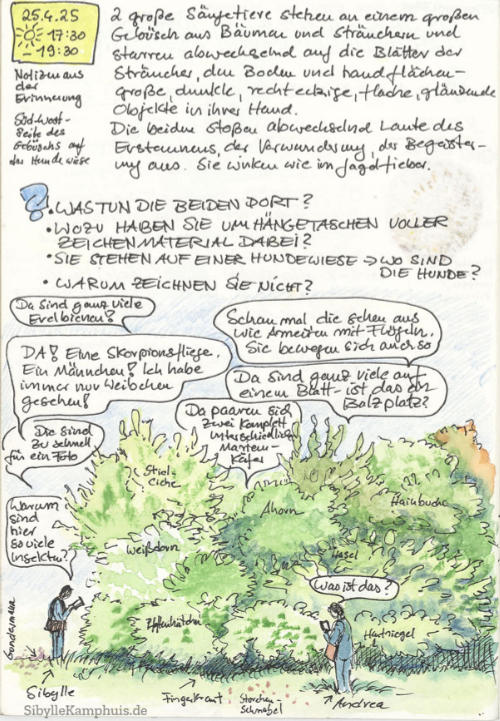 25.4.25
17:30
19:30
Notizen aus
der
Erinnerung
Süd-West-
seite des
Gebüschs auf
der Hundewiese
2 große Säugetiere stehen an einem großen
Gebüsch aus Bäumen und Sträuchern und
starren abwechselnd auf die Blätter der
Sträucher, den Boden und handflächen-
große, dunkle, rechteckige, flache, glänzende
Objekte in ihrer Hand.
Die beiden stoßen abwechselnd Laute des
Erstaunens, der Verwunderung, der Begeister-
ung aus. Sie wirken wie im Jagdfieber.
?
• WAS TUN DIE BEIDEN DORT?
• WOZU HABEN SIE UMHÄNGETASCHEN VOLLER
ZEICHENMATERIAL DABEI?
• SIE STEHEN AUF EINER HUNDEWIESE → WO SIND
DIE HUNDE?
• WARUM ZEICHNEN SIE NICHT?
Da sind ganz viele
Erdbienen!
Schau mal die sehen aus
wie Ameisen mit Flügeln.
Sie bewegen sich auch so
DA! Eine Skorpionsfliege.
Ein Männchen! Ich habe
immer nur Weibchen
gesehen!
Da sind ganz viele auf
einem Blatt - ist das ein
Balzplatz?
Die sind
zu schnell
für ein Foto
Da paaren sich
zwei komplett
unterschiedliche
Marien-
käfer
Warum
sind
hier
so viele
Insekten?
Was ist das?
Stiel-
eiche
Ahorn
Hainbuche
Weißdorn
Hasel
Pfaffenhütchen
Hartriegel
Gundermann
Sibylle
Fingerkraut
Storchen-
schnabel
Andrea
SibylleKamphuis.de